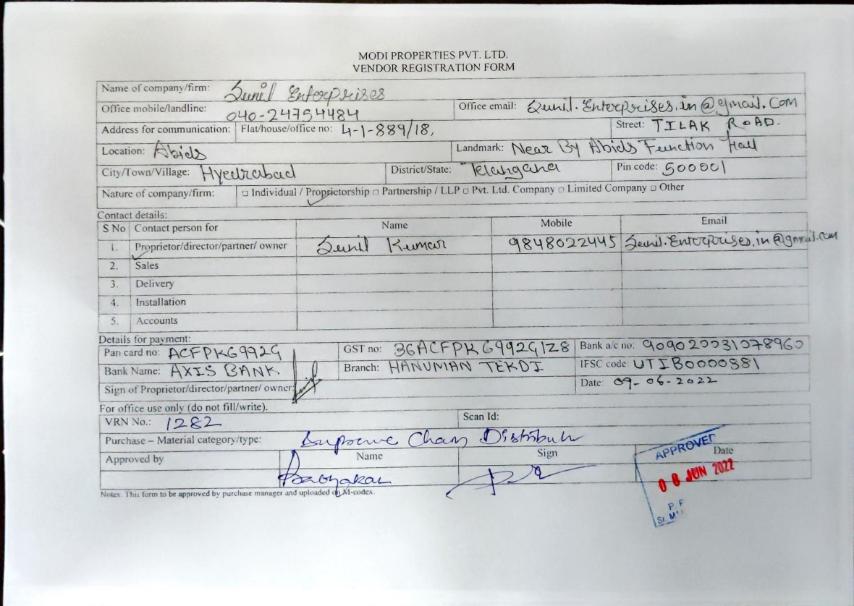 MODI PROPERTIES PVT. LTD.
VENDOR REGISTRATION FORM
Name of company/firm: Sunil Enterprises
Office mobile/landline: 040-24754484 Office email: Sunil.Enterprises.in@gmail.Com
Address for communication: Flat/house/office no: 4-1-889/18, Street: TILAK ROAD.
Location: Abids Landmark: Near By Abids Function Hall
City/Town/Village: Hyedrabad District/State: Telangana Pin code: 500001
Nature of company/firm: □ Individual / Proprietorship □ Partnership / LLP □ Pvt. Ltd. Company □ Limited Company □ Other
Contact details:
S No Contact person for Name Mobile Email
1. Proprietor/director/partner/ owner Sunil Kumar 9848022445 Sunil.Enterprises.in@gmail.com
2. Sales
3. Delivery
4. Installation
5. Accounts
Details for payment:
Pan card no: ACFPKG992G GST no: 36ACFPKG992G1Z8 Bank a/c no: 909020031078960
Bank Name: AXIS BANK. Branch: HANUMAN TEKDI IFSC code UTIB0000381
Sign of Proprietor/director/partner/ owner: Date: 09-06-2022
For office use only (do not fill/write).
VRN No.: 1282 Scan Id:
Purchase – Material category/type: Supreme Distributor
Approved by Name Sign Date
APPROVED
08 JUN 2022
Notes: This form to be approved by purchase manager and uploaded on M-codex.